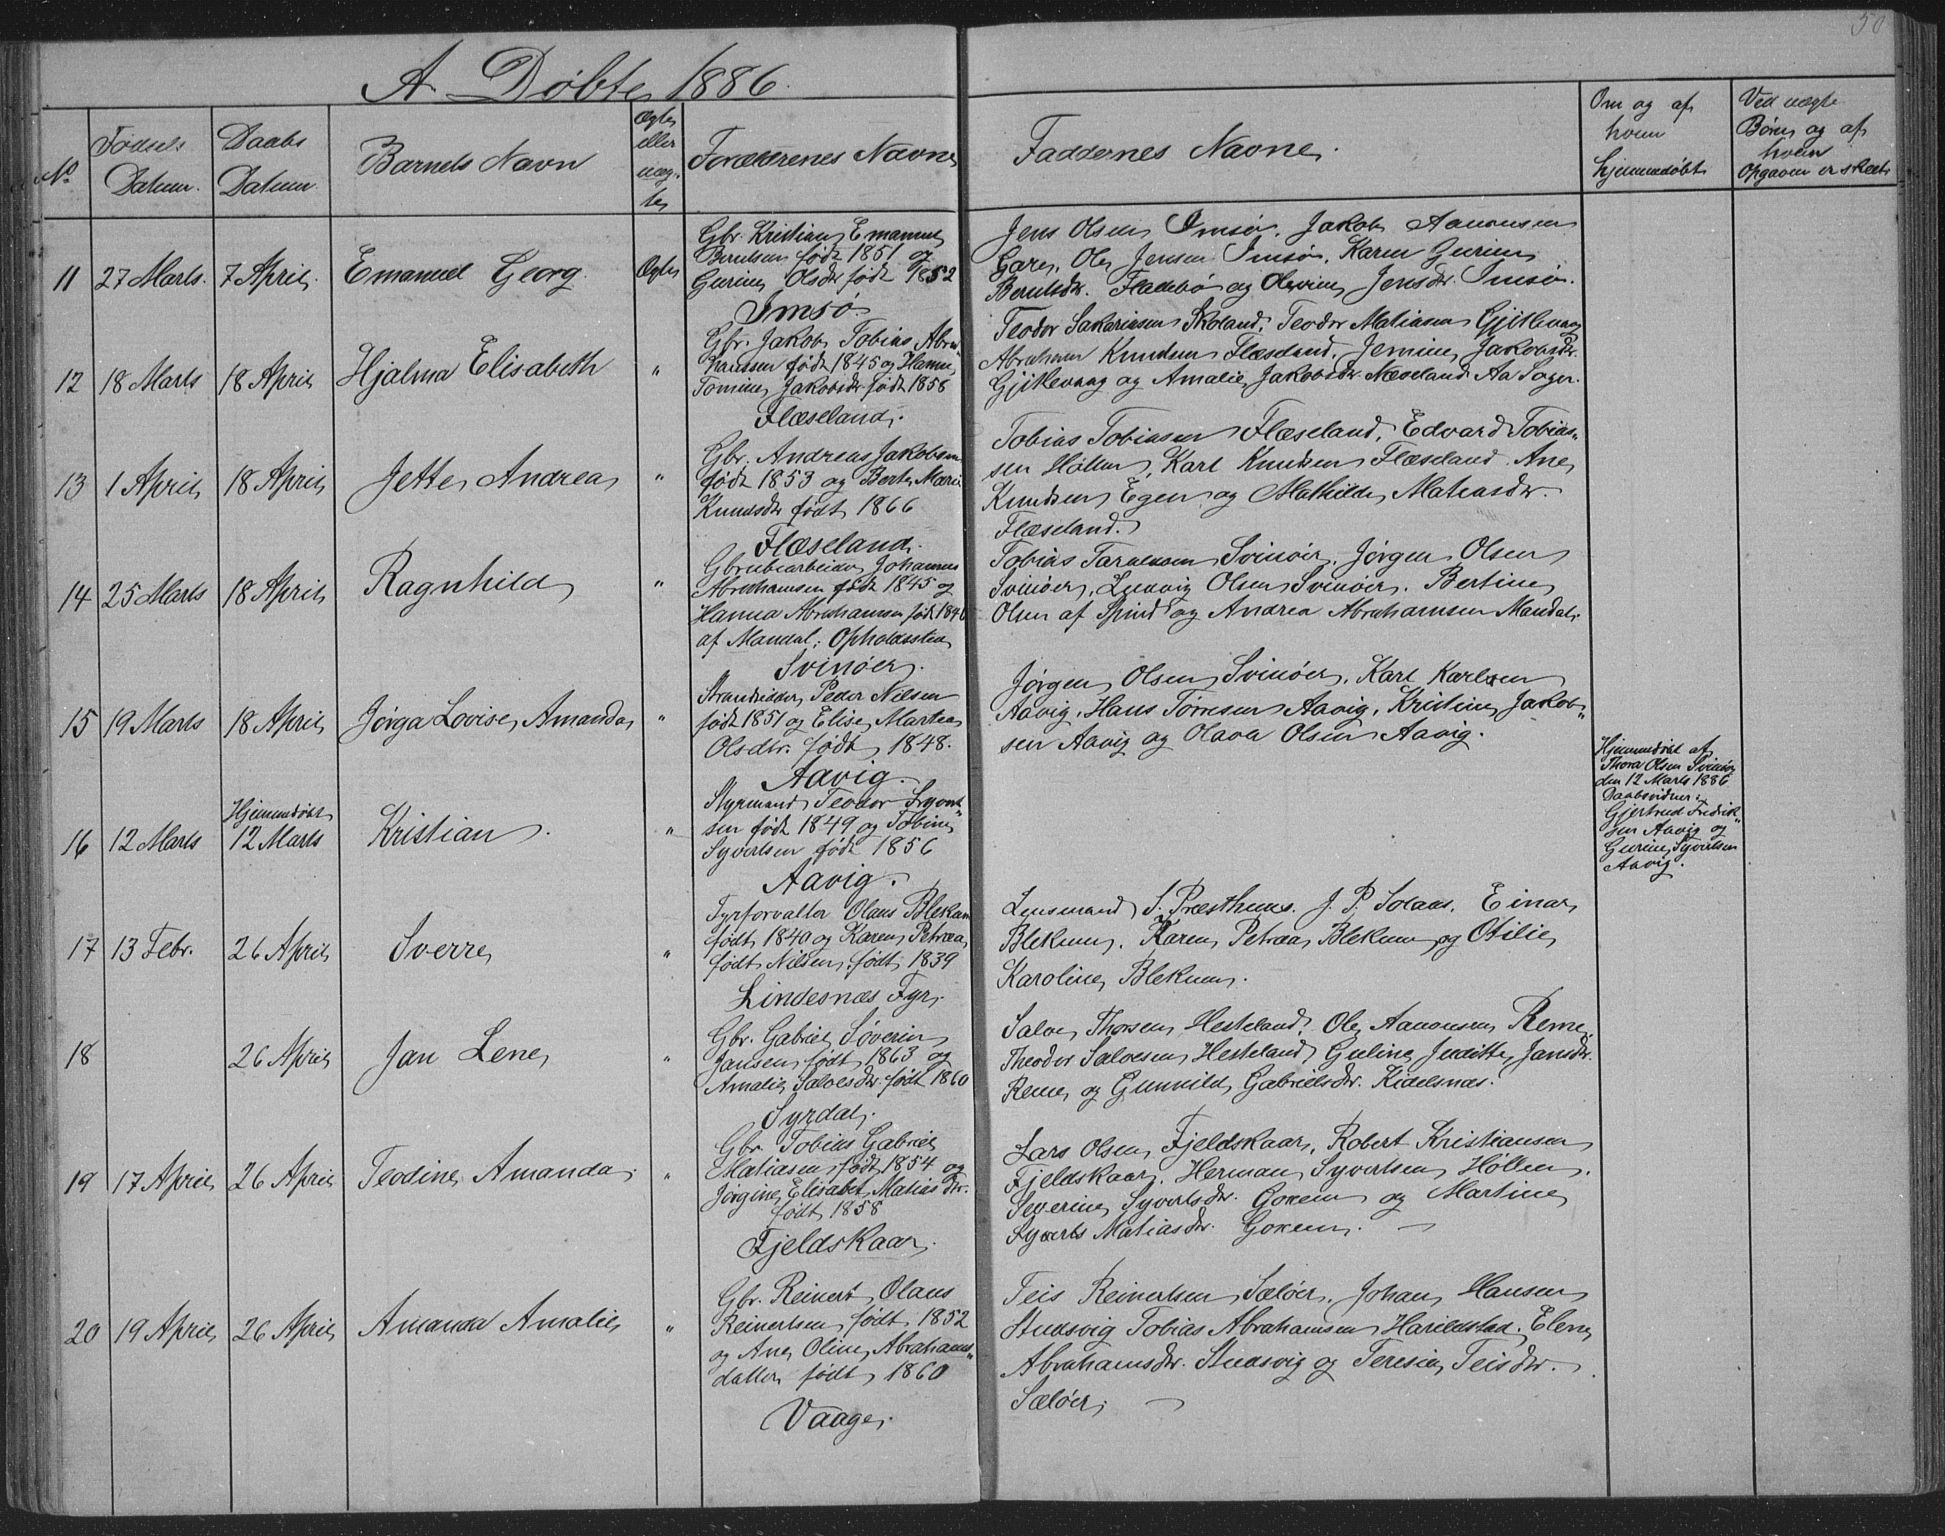 50
A Døbte 1886.
No
Fødsels Datum.
Daabs Datum
Barnets Navn
Ægte eller uæg-te
Forældrenes Navne
Faddernes Navne.
Om og af hvem hjemmedøbt
Ved uægte Børn og af hvem Opgaven er skeet
11 27 Marts. 7 April. Emanuel Georg. Ægte
Gbr. Kristian Emanuel
Berntsen født 1851 og
Gurine Olsdr født 1852
Imsø.
Jens Olsen Imsø. Jakob Aanonsen
Gare, Ole Jensen Imsø. Karen Gurine
Berntsdr. Fladebø og Olevine Jensdr. Imsø.
12 18 Marts 18 April Hjalma Elisabeth "
Gbr. Jakob Tobias Abra"
hamsen født 1845 og Hanne
Tomine Jakobsdr født 1858
Flæseland.
Teodor Sakariasen Skoland, Teodor Matiasen Gjitlevaag
Abraham Knudsen Flæseland. Jemine Jakobsdr.
Gjitlevaag og Amalie Jakobsdr. Næveland Aa Sogn.
13 1 April 18 April Jette Andrea "
Gbr. Andreas Jakobsen
født 1853 og Berte Marie
Knudsdr født 1866
Flæseland.
Tobias Tobiasen Flæseland, Edvard Tobias"
sen Høllen, Karl Knudsen Flæseland. Ane
Knudsen Egen og Mathilde Matiasdr.
Flæseland.
14 25 Marts 18 April Ragnhild "
Grubearbeider Johannes
Abrahamsen født 1845 og
Hanna Abrahamsen født 1846
af Mandal; Opholdssted
Svinøer.
Tobias Taraldsen Svinøer, Jørgen Olsen
Svinøer, Ludvig Olsen Svinøer. Bertine
Olsen af Spind og Andrea Abrahamsen Mandal.
15 19 Marts 18 April Jørga Lovise Amanda "
Strandsidder Peder Nilsen
født 1851 og Elise Martea
Olsdtr. født 1848.
Aavig.
Jørgen Olsen Svinøer, Karl Karlsen
Aavig, Hans Tørresen Aavig, Kristine Jakob"
sen Aavig og Olava Olsen Aavig.
16 12 Marts Hjemmedøbt
12 Marts Kristian. "
Styrmand Teodor Syvert"
sen født 1849 og Tobine
Syvertsen født 1856
Aavig.
Hjemmedøbt af
Thora Olsen Svinøer
den 12 Marts 1886
Daabsvidner:
Gjertrud Fredrik"
sen Aavig og
Gurine Syvertsen
Aavig.
17 13 Febr. 26 April Sverre "
Fyrforvalter Olaus Blekum
født 1840 og Karen Petræa
født Nilsen født 1839
Lindesnæs Fyr.
Lensmand S. Præsthuus. J. P. Solaas, Einar
Blekum, Karen Petræa Blekum og Otilie
Karoline Blekum.
18 26 April Jan Lene "
Gbr. Gabriel Søverin
Jansen født 1863 og
Amalie Salvesdr. født 1860
Syrdal.
Salve Thorsen Hesteland, Ole Aanonsen Reme
Theodor Salvesen Hesteland Guline Juditte Jansdr.
Reme og Gunnild Gabrielsdr. Kidelsnæs.
19 17 April 26 April Teodine Amanda. "
Gbr. Tobias Gabriel
Matiasen født 1854 og
Jørgine Elisabet Matias dr.
født 1858
Fjeldskaar.
Lars Olsen Fjeldskaar, Robert Kristiansen
Fjeldskaar. Herman Syvertsen Høllen,
Severine Syvertsdr. Goxem og Martine
Syverts Matiasdr. Goxem.
20 19 April 26 April Amanda Amalie "
Gbr. Reinert Olaus
Reinertsen født 1852
og Ane Oline Abrahams"
datter født 1860
Vaage.
Teis Reinertsen Sæløer, Johan Hansen
Studsvig Tobias Abrahamsen Harildstad, Elene
Abrahamsdr. Studsvig og Teresia Teisdr.
Sæløer.